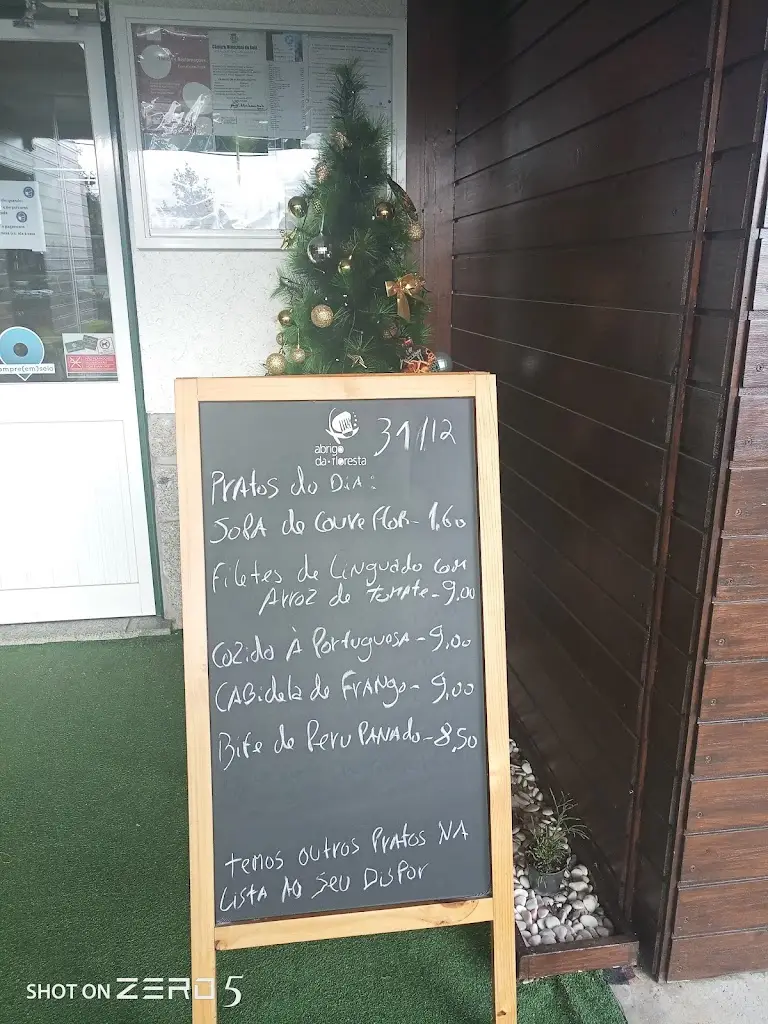 Câmara Municipal de Seia
compre(em)seia
abrigo
da·floresta
31/12
Pratos do Dia:
Sopa de Couve Flor - 1,60
Filetes de Linguado com
Arroz de Tomate - 9,00
Cozido À Portuguosa - 9,00
Cabidela de Frango - 9,00
Bife de Peru Panado - 8,50
temos outros Pratos NA
Lista Ao Seu Dispor
SHOT ON ZERO 5